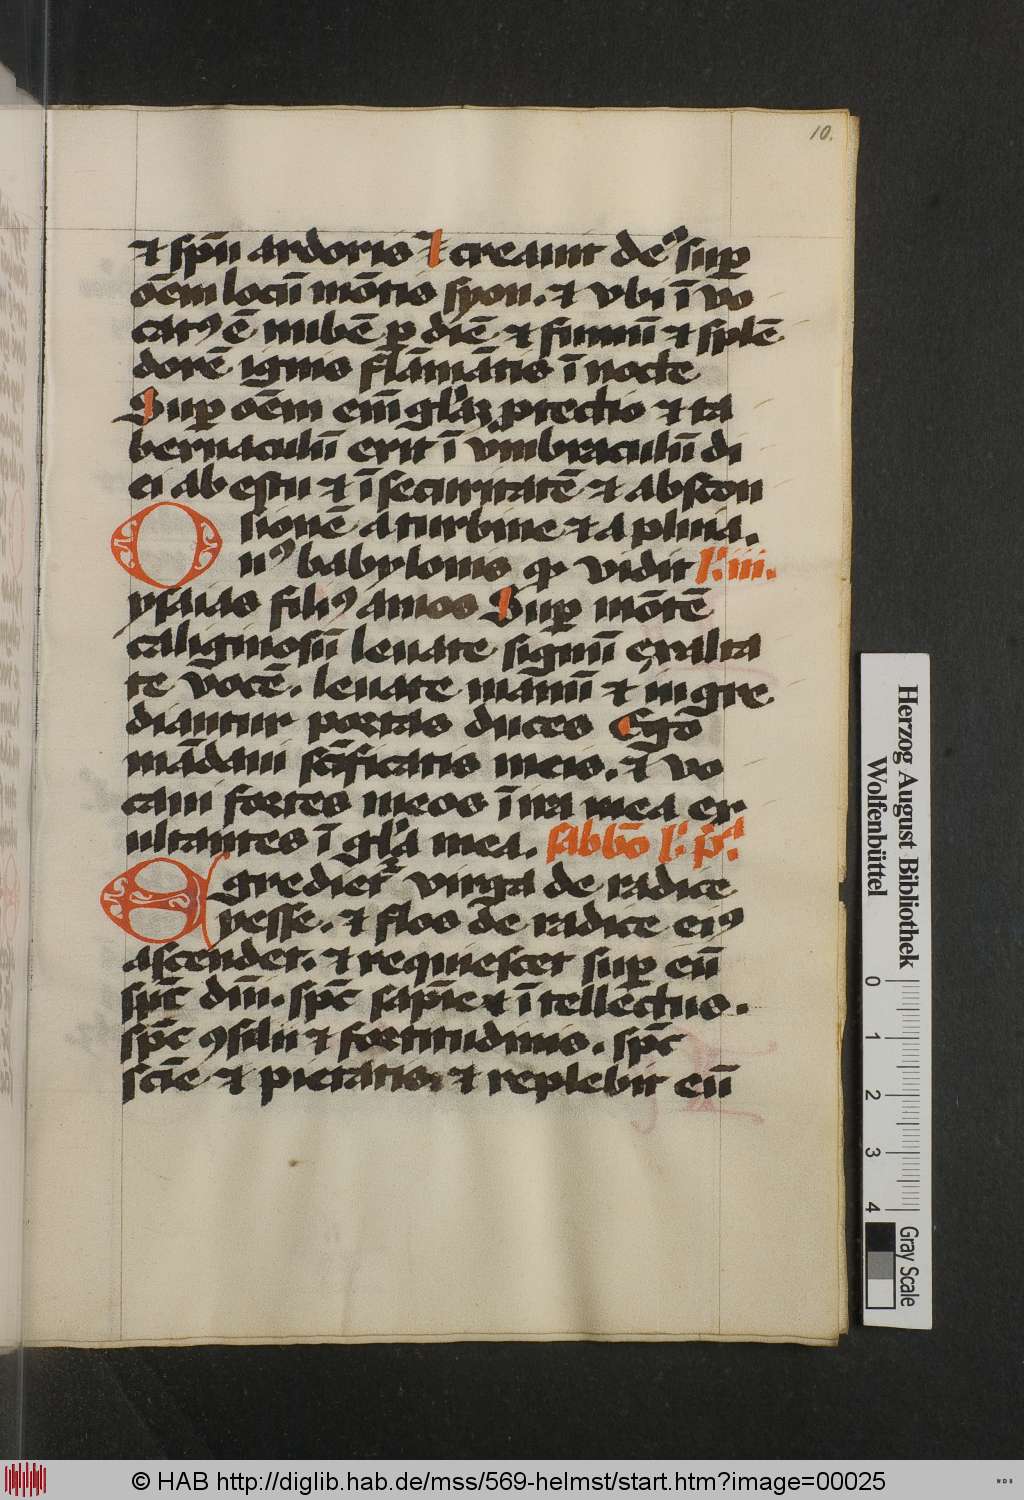 10.
⁊ spū ardoris ⁊ creauit deꝰ sup̱
oēm locū mōtis syon. ⁊ vbi ī vo
catꝰ ē nubē ꝑ diē ⁊ fumū ⁊ splē
dorē ignis flāmātis ī nocte
Sup̱ oēm em̄ gl̄aꝫ ꝓtectio ⁊ ta
bernaculū erit ī vmbraculū di
ei ab estu ⁊ ī securitatē ⁊ abscon
sionē a turbine ⁊ a pluuia.
Onꝰ babylonis qͦ vidit l̄. iii.
ysaias filiꝰ amos Sup̱ mōtē
caliginosū leuate signū exalta
te vōcē. leuate mānū ⁊ ingre
diantur portas duces Ego
mādaui sc̄ificatis meis. ⁊ vo
caui fortes meos ī ira mea ex
ultantes ī gl̄a mea. sabbō l̄. pͥͣ.
Egredietᷣ virga de radice
yesse. ⁊ flos de radice eiꝰ
ascendet. ⁊ requiescet sup̱ eū
sp̄c dn̄i. sp̄c sapīe ⁊ ītellectus.
sp̄c ꝯsilii ⁊ fortitudinis. sp̄c
scīe ⁊ pietatis. ⁊ replebit eū
Herzog August Bibliothek
Wolfenbüttel
0 1 2 3 4
Gray Scale
© HAB http://diglib.hab.de/mss/569-helmst/start.htm?image=00025